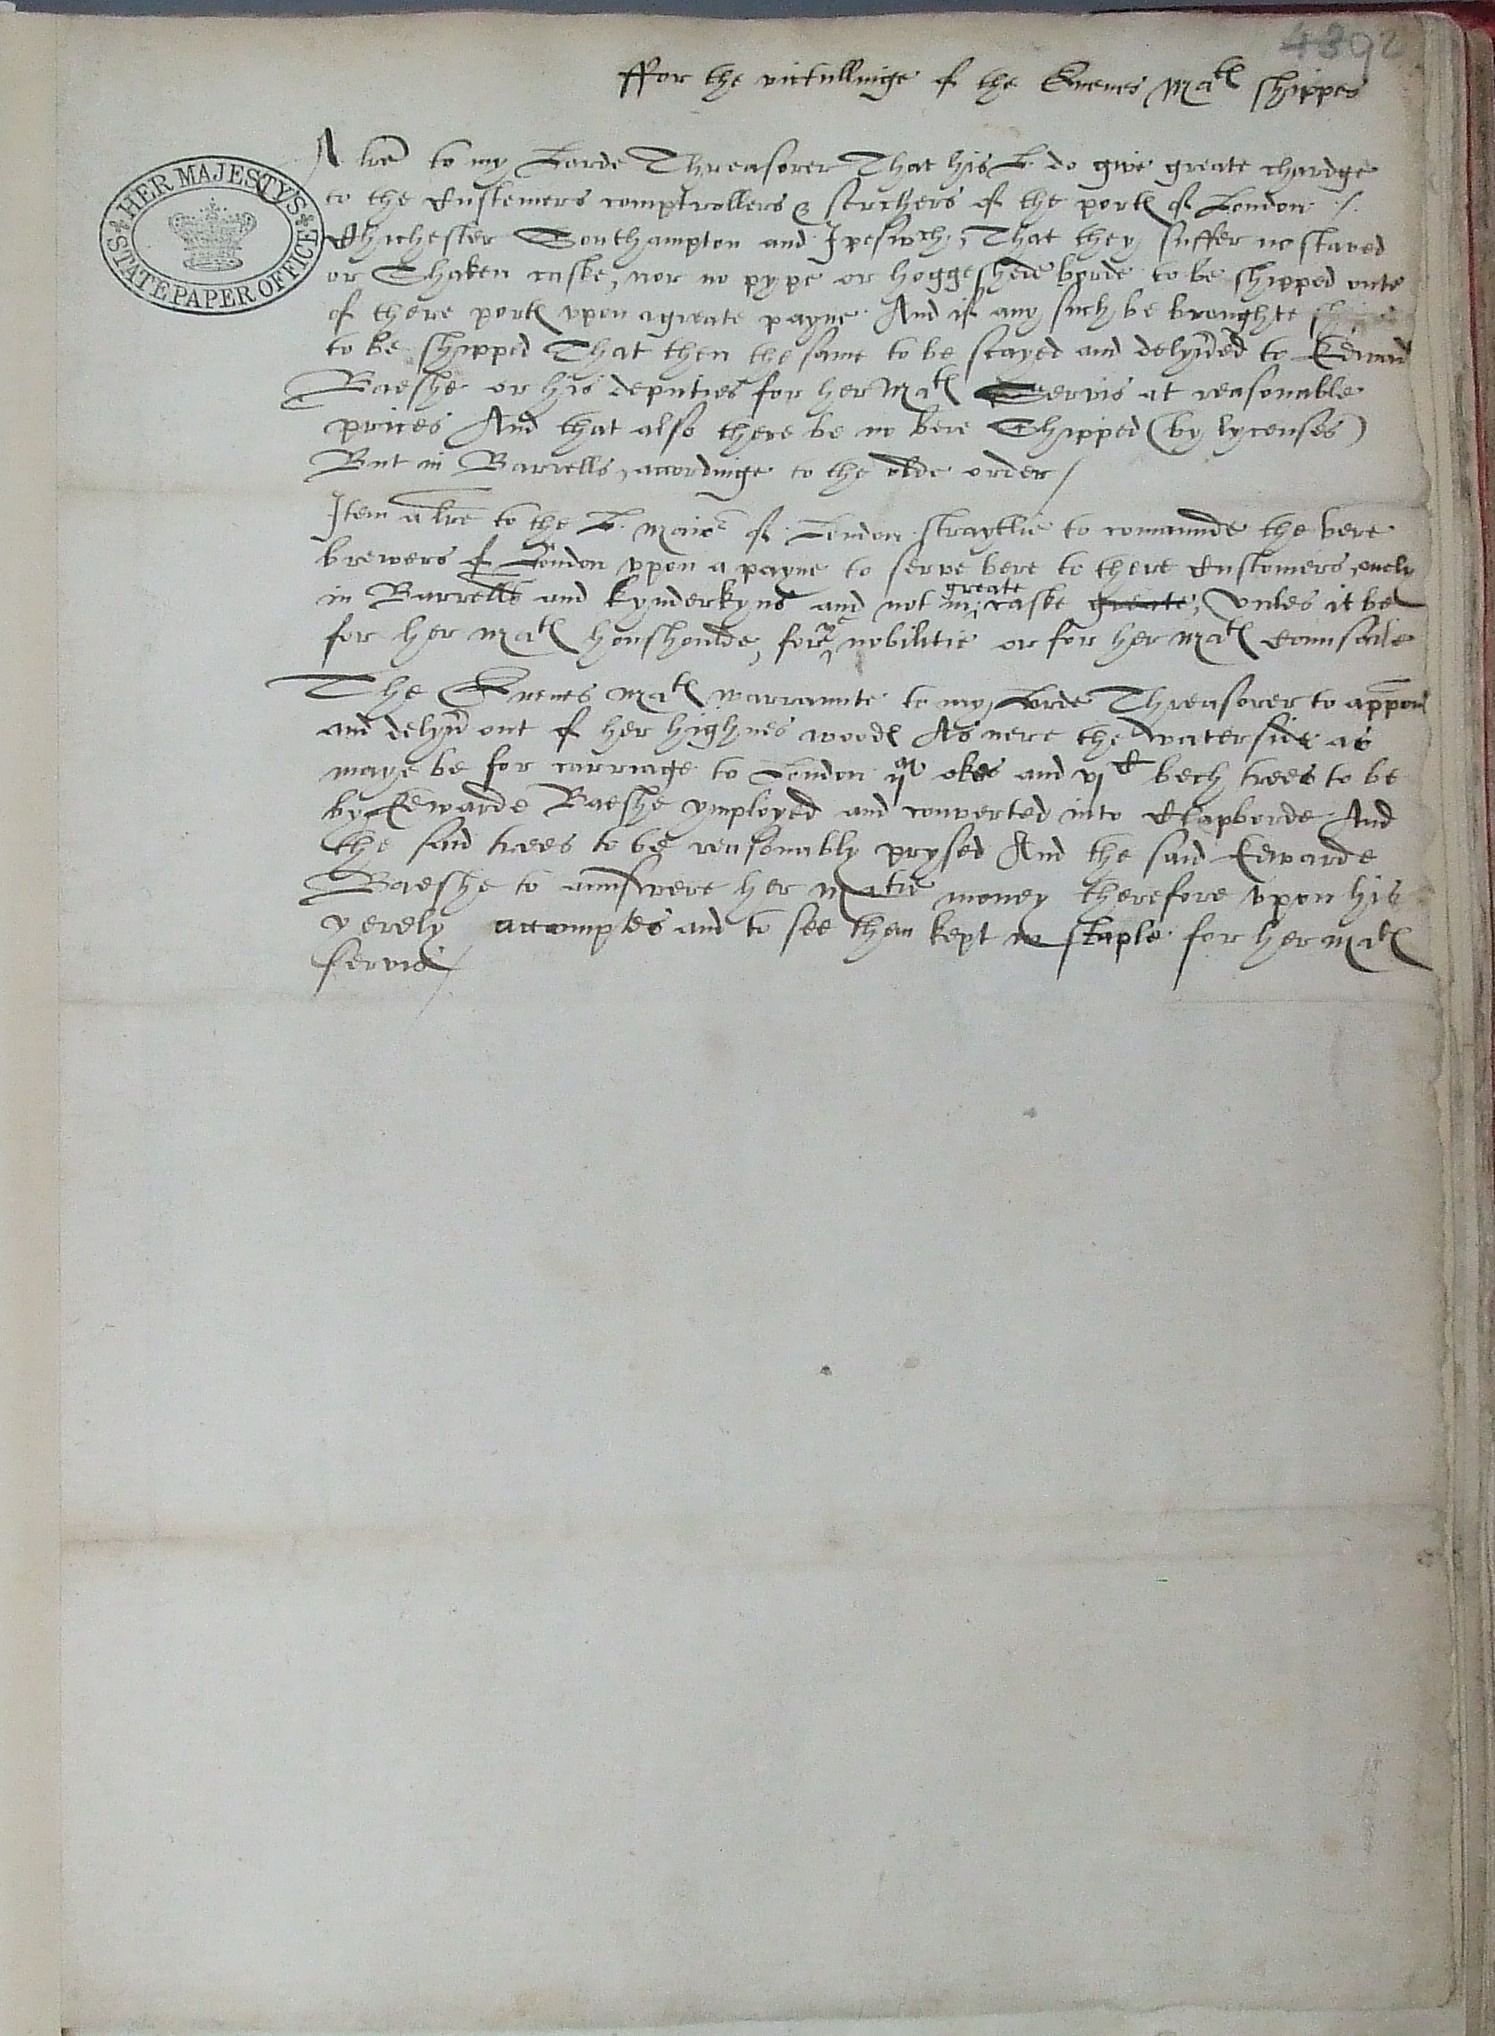 4892
ffor the victullinge of the Quenes Matƺ shippes
HER MAJESTY'S STATE PAPER OFFICE
A lre to my Lorde Threasorer That his L. do give great chardge
to the Customers comptrollers & serchers of the portƺ of London /.
Chichester Southampton and Ipeswch, That they suffer no staved
or Shaken caske, nor no pype or hoggeshede borde to be shipped oute
of there portƺ vpon a greate payne. And if any such be broughte
to be shipped That then the same to be stayed and delyvred to Edward
Baeshe or his deputies for her Matƺ Servis at reasonable
prices And that also there be no bere Shipped (by lycenses)
But in Barrells, accordinge to the olde order /
Item a lre to the L. maior of London straytlie to comaunde the bere
brewers of London vpon a payne to serve bere to there Customers, onely
in Barrells and kynderkyns and not in great caske greate, Vnles it be
for her Matƺ houshoulde, for nobilitie or for her Matƺ Counsaile
The Quenes Matƺ warraunte to my Lorde Threasorer to appoin
and delyvr out of her highnes woodƺ As nere the waterside as
maye be for carriage to London ijM okes and vjC bech trees to be
by Edwarde Baeshe ymployed and converted into Clapborde And
the said trees to be reasonably prysed And the said Edwarde
Baeshe to aunswere her Matie money therefore vpon his
yerely accomptes and to see them kept in staple for her Matƺ
servis /